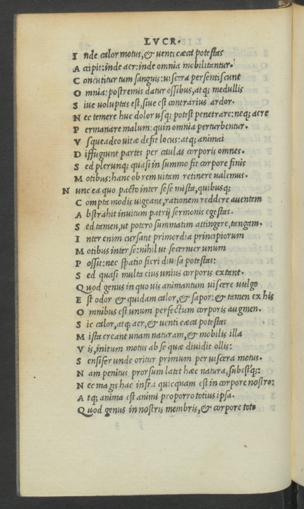 LVCR.
I nde calor motus, & uenti cæca potestas
A ccipit: inde aer: inde omnia mobilitantur.
C oncutitur tum sanguis: uiscera persentiscunt
O mnia: postremis datur ossibus, atq; medullis
S iue voluptas est, siue est contrarius ardor.
N ec temere huc dolor usq; potest penetrare: neq; acre
P ermanare malum: quin omnia perturbentur.
V sque adeo uitæ desit locus: atq; animai
D iffugiunt partes per caulas corporis omnes.
S ed plerunq; quasi in summo fit corpore finis
M otibus: hanc ob rem uitam retinere ualemus.
N unc ea quo pacto inter sese mista, quibusq;
C ompta modis uigeant, rationem reddere auentem
A bstrahit inuitum patrij sermonis egestas.
S ed tamen, ut potero summatim attingere, tangam.
I nter enim cursant primordia principiorum
M otibus inter se: nihil ut secernier unum
P ossit: nec spatio fieri diuisa potestas:
S ed quasi multæ uis unius corporis extent.
Q uod genus in quouis animantum uiscere uulgo
E st odor & quidam calor, & sapor: & tamen ex his
O mnibus est unum perfectum corporis augmen.
S ic calor, atq; aer, & uenti cæca potestas
M ista creant unam naturam, & mobilis illa
V is, initum motus ab se quæ diuidit ollis:
S ensifer unde oritur primum per uiscera motus.
N am penitus prorsum latet hæc natura, subestq;:
N ec magis hac infra quicquam est in corpore nostro:
A tq; anima est animi proporro totius ipsa.
Q uod genus in nostris membris, & corpore toto